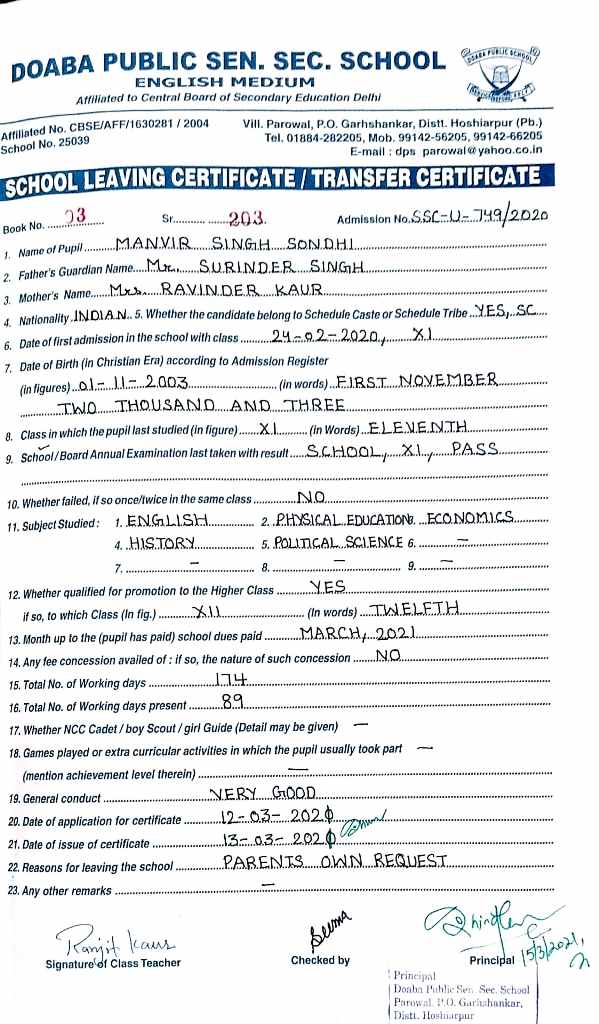 DOABA PUBLIC SEN. SEC. SCHOOL
ENGLISH MEDIUM
Affiliated to Central Board of Secondary Education Delhi
DOABA PUBLIC SCHOOL
Affiliated No. CBSE/AFF/1630281 / 2004
School No. 25039
Vill. Parowal, P.O. Garhshankar, Distt. Hoshiarpur (Pb.)
Tel. 01884-282205, Mob. 99142-56205, 99142-66205
E-mail : dps parowal@yahoo.co.in
SCHOOL LEAVING CERTIFICATE / TRANSFER CERTIFICATE
Book No. 03 Sr. 203. Admission No. SSC-U-749/2020
1. Name of Pupil MANVIR SINGH SONDHI
2. Father's Guardian Name Mr. SURINDER SINGH
3. Mother's Name Mrs. RAVINDER KAUR
4. Nationality INDIAN 5. Whether the candidate belong to Schedule Caste or Schedule Tribe YES, SC
6. Date of first admission in the school with class 24-02-2020, XI
7. Date of Birth (in Christian Era) according to Admission Register
(in figures) 01-11-2003 (in words) FIRST NOVEMBER
TWO THOUSAND AND THREE
8. Class in which the pupil last studied (in figure) XI (in Words) ELEVENTH
9. School / Board Annual Examination last taken with result SCHOOL, XI, PASS
10. Whether failed, if so once/twice in the same class NO
11. Subject Studied : 1. ENGLISH 2. PHYSICAL EDUCATION 3. ECONOMICS
4. HISTORY 5. POLITICAL SCIENCE 6. –
7. – 8. – 9. –
12. Whether qualified for promotion to the Higher Class YES
if so, to which Class (In fig.) XII (In words) TWELFTH
13. Month up to the (pupil has paid) school dues paid MARCH, 2021
14. Any fee concession availed of : if so, the nature of such concession NO
15. Total No. of Working days 174
16. Total No. of Working days present 89
17. Whether NCC Cadet / boy Scout / girl Guide (Detail may be given) –
18. Games played or extra curricular activities in which the pupil usually took part –
(mention achievement level therein) –
19. General conduct VERY GOOD
20. Date of application for certificate 12-03-2021
21. Date of issue of certificate 13-03-2021
22. Reasons for leaving the school PARENTS OWN REQUEST
23. Any other remarks –
Ranjit Kaur
Signature of Class Teacher
Seema
Checked by
Principal 15/3/2021
Principal
Doaba Public Sen. Sec. School
Parowal, P.O. Garhshankar,
Distt. Hoshiarpur